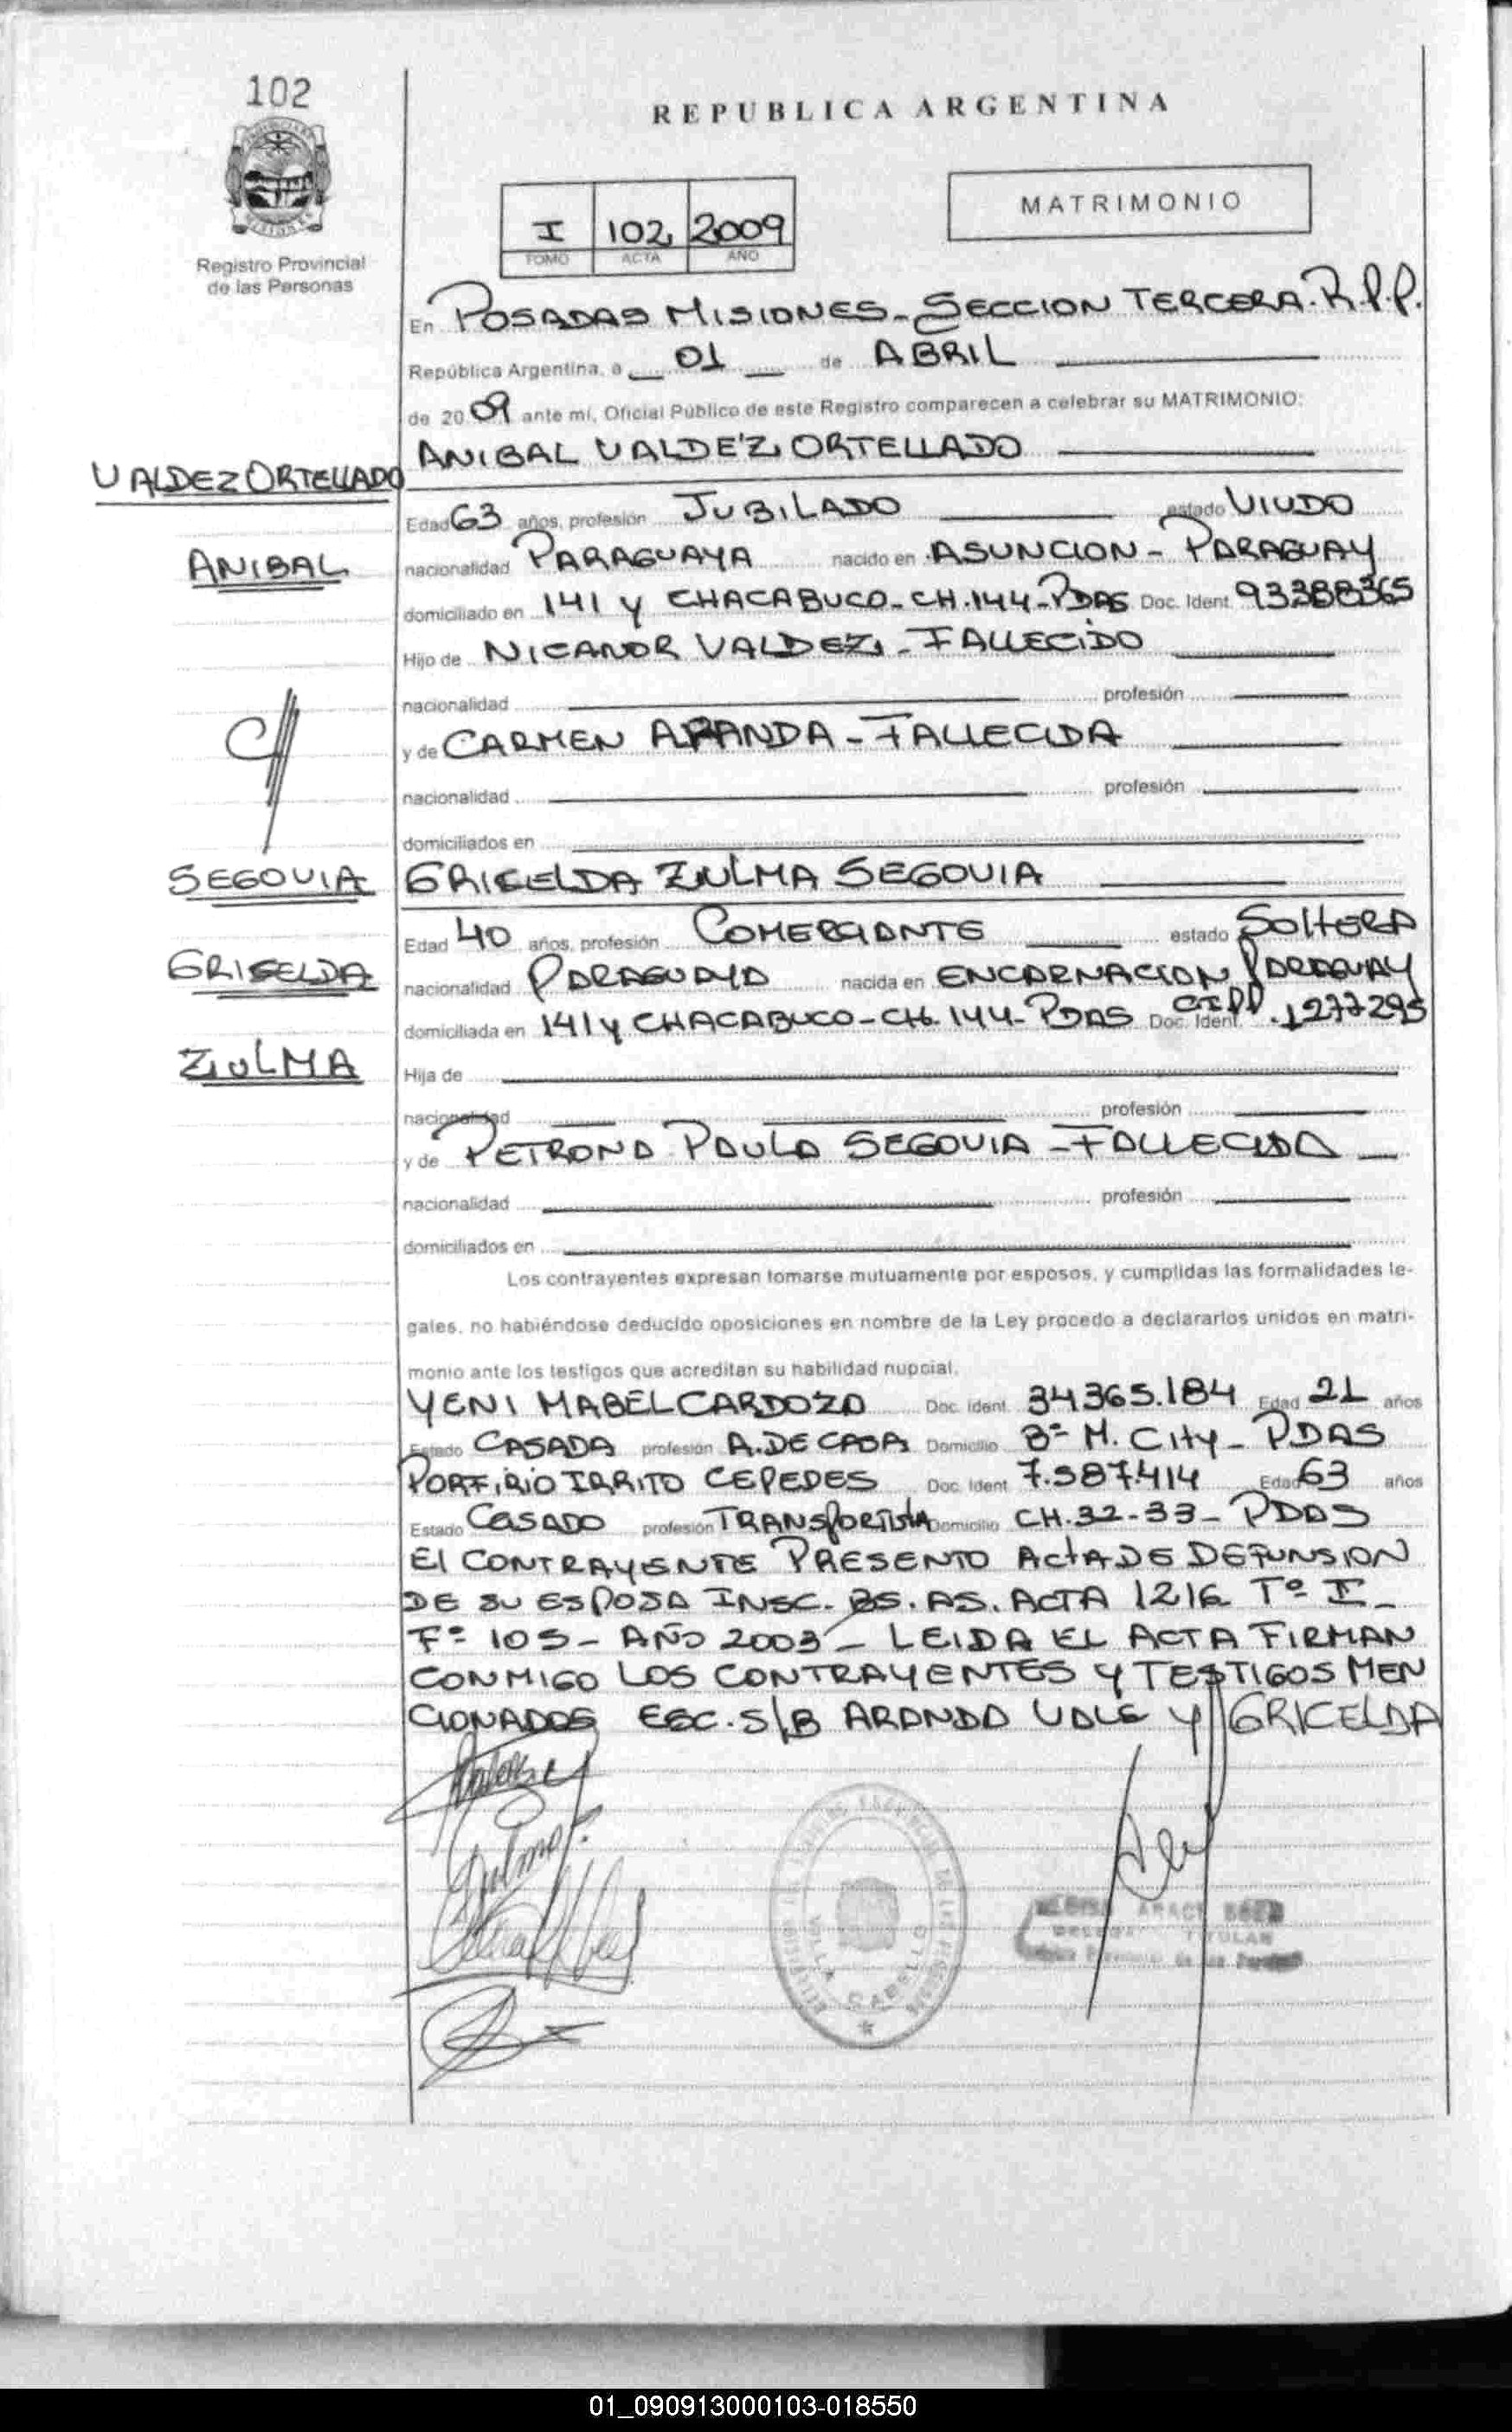 102
REPUBLICA ARGENTINA
MATRIMONIO
I 102 2009
TOMO ACTA AÑO
Registro Provincial
de las Personas
En POSADAS MISIONES - SECCION TERCERA. R.P.P.
República Argentina, a 01 de ABRIL
de 2009 ante mí, Oficial Público de este Registro comparecen a celebrar su MATRIMONIO:
VALDEZ ORTELLADO
ANIBAL VALDEZ ORTELLADO
Edad 63 años, profesión JUBILADO estado VIUDO
ANIBAL
nacionalidad PARAGUAYA nacido en ASUNCION - PARAGUAY
domiciliado en 141 y CHACABUCO - CH. 144 - PDAS Doc. Ident. 93388365
Hijo de NICANOR VALDEZ - FALLECIDO
nacionalidad profesión
C//
y de CARMEN ARANDA - FALLECIDA
nacionalidad profesión
domiciliados en
SEGOVIA
GRISELDA ZULMA SEGOVIA
Edad 40 años, profesión COMERCIANTE estado SOLTERA
GRISELDA
nacionalidad PARAGUAYA nacida en ENCARNACION PARAGUAY
domiciliada en 141 y CHACABUCO - CH. 144 - PDAS Doc. Ident. 1277295
ZULMA
Hija de
nacionalidad profesión
y de PETRONA PAULA SEGOVIA - FALLECIDA
nacionalidad profesión
domiciliados en
Los contrayentes expresan tomarse mutuamente por esposos, y cumplidas las formalidades le-
gales, no habiéndose deducido oposiciones en nombre de la Ley procedo a declararlos unidos en matri-
monio ante los testigos que acreditan su habilidad nupcial.
YENI MABEL CARDOZO Doc. Ident. 34365.184 Edad 21 años
Estado CASADA profesión A. DE CASA Domicilio Bº M. CITY - PDAS
PORFIRIO IRRITO CEPEDES Doc. Ident. 7.587.414 Edad 63 años
Estado CASADO profesión TRANSPORTISTA Domicilio CH. 32-33 - PDAS
EL CONTRAYENTE PRESENTO ACTA DE DEFUNSION
DE SU ESPOSA INSC. BS. AS. ACTA 1216 Tº I -
Fº 105 - AÑO 2003 - LEIDA EL ACTA FIRMAN
CONMIGO LOS CONTRAYENTES Y TESTIGOS MEN
CIONADOS ESC. S/B ARANDA VALE Y GRICELDA
VILLA CABELLO
TITULAR
01_090913000103-018550